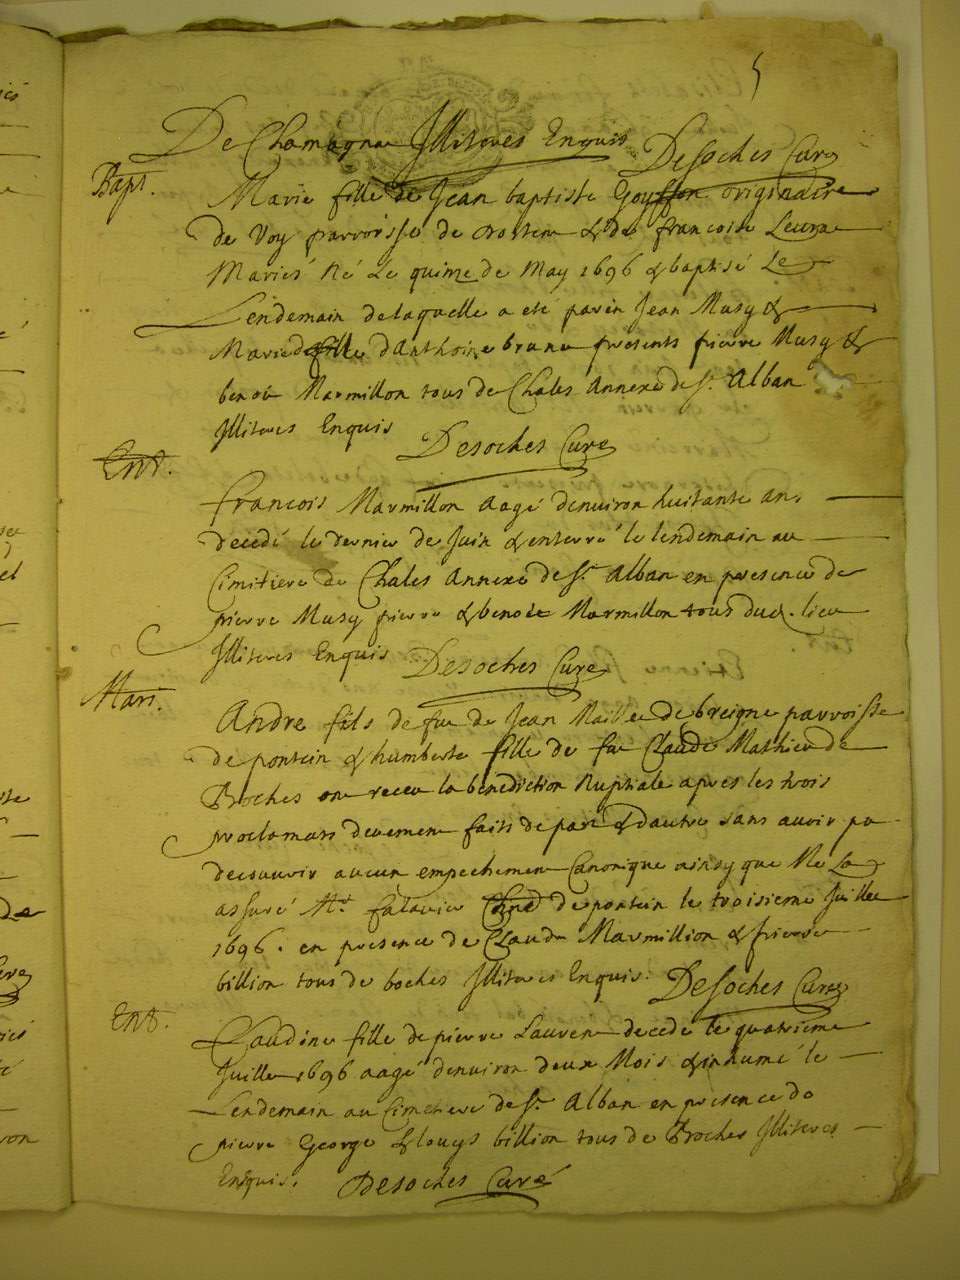 5
De Champagne Illiteres Enquis Desoches Curé
Bapt.
Marie fille de Jean baptiste Goyffon originaire
de Voy parroisse de et de francoise
Mariés Né Le quinze de May 1696 & baptisé Le
Lendemain de laquelle a eté parin Jean Musy &
Marie fille d'Anthoine brun presents pierre Musy &
benoit Marmillon tous de Chales Annexe de St. Alban
Illiteres Enquis Desoches Curé
Ent.
francois Marmillon aagé denviron huitante ans
decedé le dernier de Juin & enterré le lendemain au
Cimitiere de Chales Annexe de St. Alban en presence de
pierre Musy pierre & benoit Marmillon tous dud. lieu
Illiteres Enquis Desoches Curé
Mari.
Andre fils de fue de Jean Maillet de breigne parroisse
de pontein & humberte fille de fue Claude Mathieu de
Broches ont receu la benediction Nuptiale apres les trois
proclamats deuement faits de part & dautre sans avoir pu
decouvrir aucun empechement Canonique ainsy que Me La
assuré Mr. Curé de pontein le troisieme Juillet
1696. en presence de Claude Marmillion & pierre
billion tous de boches Illiteres Enquis. Desoches Curé
Ent.
Claudine fille de pierre Laurent decedé le quatrieme
Juillet 1696 aagé denviron deux Mois & inhumé le
Lendemain au Cimetiere de St. Alban en presence de
pierre George & Louys billion tous de Broches Illiteres
Enquis. Desoches Curé